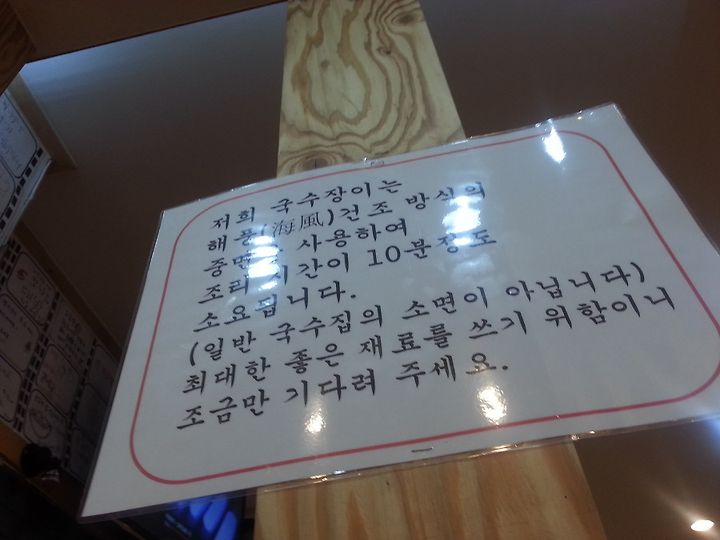 저희 국수장이는
해풍(海風)건조 방식의
중면을 사용하여
조리 시간이 10분정도
소요됩니다.
(일반 국수집의 소면이 아닙니다)
최대한 좋은 재료를 쓰기 위함이니
조금만 기다려 주세요.